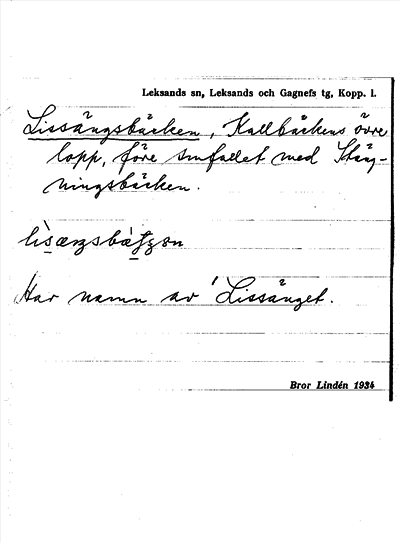 Leksands sn, Leksands och Gagnefs tg, Kopp. l.
Lissängsbäcken, Kallbäckens övre
lopp, före smfallet med Stäng-
ningsbäcken.
Har namn av Lissänget.
Bror Lindén 1934